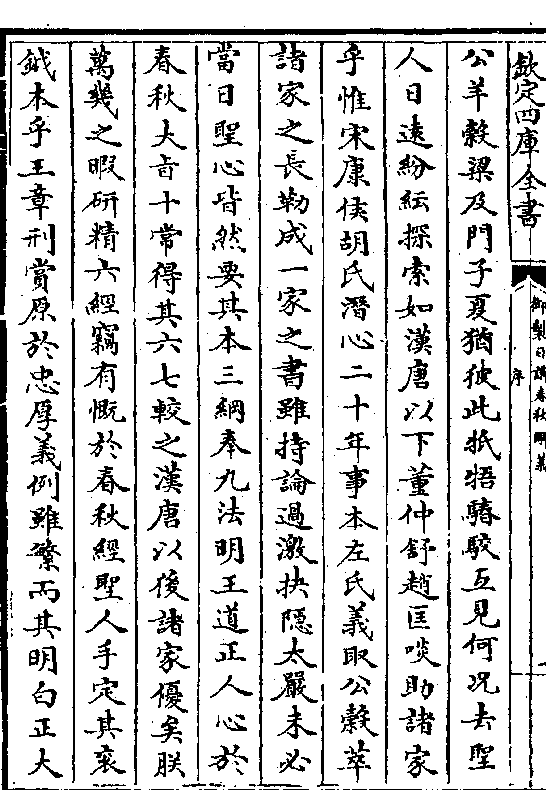 欽定四庫全書
御製日講春秋解義
序
公羊穀梁及門子夏猶彼此牴牾驕駮互見何况去聖
人日逺紛紜探索如漢唐以下董仲舒趙匡啖助諸家
乎惟宋康侯胡氏潛心二十年事本左氏義取公穀萃
諸家之長勒成一家之書雖持論過激抉隠太嚴未必
當日聖心皆然要其本三綱奉九法明王道正人心於
春秋大㫖十常得其六七較之漢唐以後諸家優矣朕
萬幾之暇研精六經竊有慨於春秋經聖人手定其衮
鉞本乎王章刑賞原於忠厚義例雖繁而其明白正大